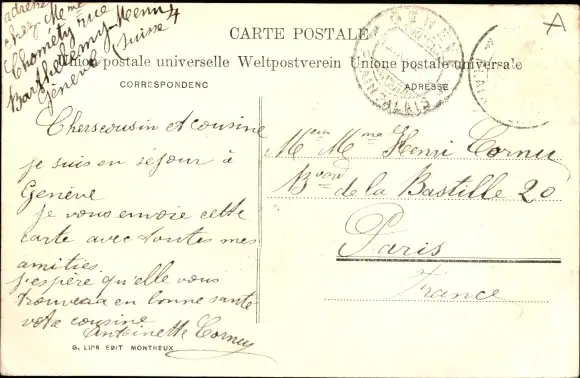 adresse
chez Mme
Chomety rue
Barthélemy-Menn 4
Genève (Suisse
CARTE POSTALE
Union postale universelle Weltpostverein Unione postale universale
CORRESPONDENC
ADRESSE
Chers cousin et cousine
je suis en séjour à
Genève
je vous envoie cette
carte avec toutes mes
amitiés.
j'espère qu'elle vous
trouvera en bonne santé
votre cousine
Antoinette Cornu
Mr et Mme Henri Cornu
Bvard de la Bastille 20
Paris
France
G. LIPS EDIT MONTREUX